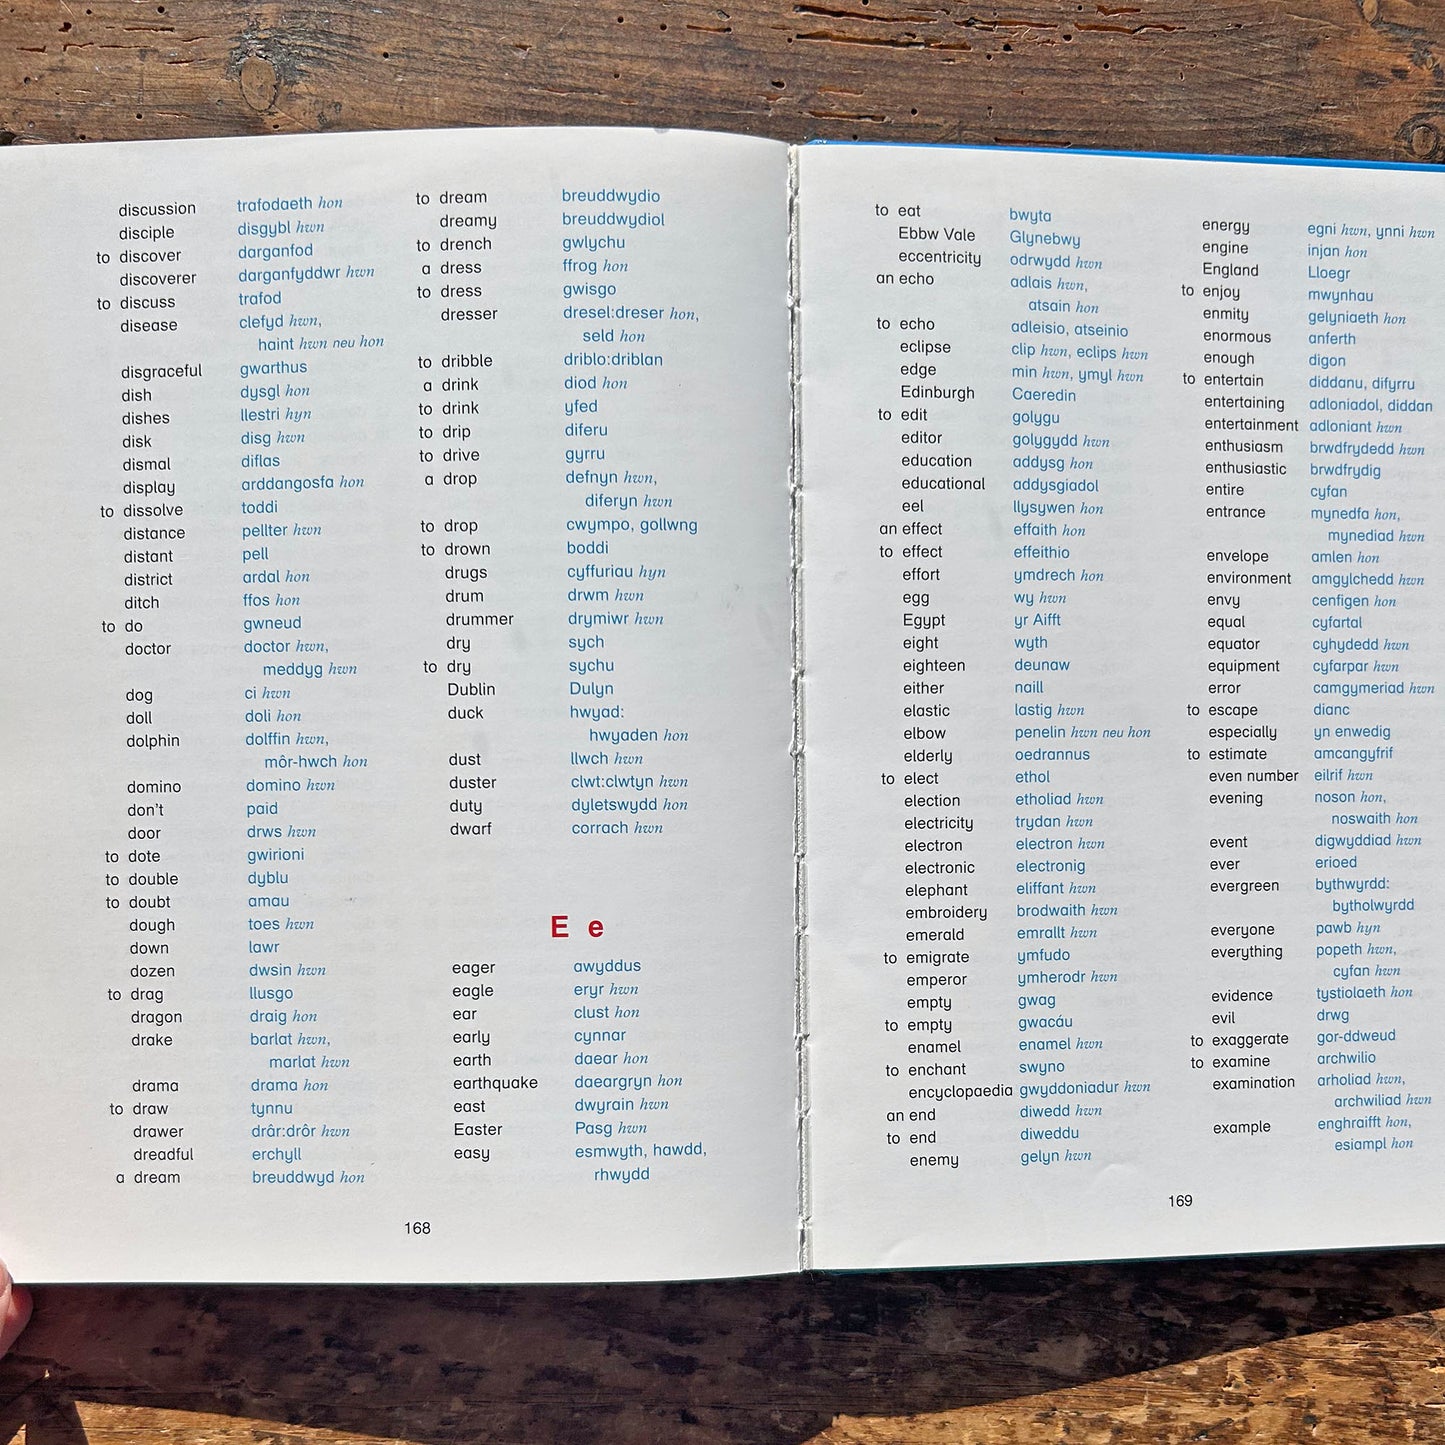 discussion trafodaeth hon
disciple disgybl hwn
to discover darganfod
discoverer darganfyddwr hwn
to discuss trafod
disease clefyd hwn,
haint hwn neu hon
disgraceful gwarthus
dish dysgl hon
dishes llestri hyn
disk disg hwn
dismal diflas
display arddangosfa hon
to dissolve toddi
distance pellter hwn
distant pell
district ardal hon
ditch ffos hon
to do gwneud
doctor doctor hwn,
meddyg hwn
dog ci hwn
doll doli hon
dolphin dolffin hwn,
môr-hwch hon
domino domino hwn
don't paid
door drws hwn
to dote gwirioni
to double dyblu
to doubt amau
dough toes hwn
down lawr
dozen dwsin hwn
to drag llusgo
dragon draig hon
drake barlat hwn,
marlat hwn
drama drama hon
to draw tynnu
drawer drâr:drôr hwn
dreadful erchyll
a dream breuddwyd hon
to dream breuddwydio
dreamy breuddwydiol
to drench gwlychu
a dress ffrog hon
to dress gwisgo
dresser dresel:dreser hon,
seld hon
to dribble driblo:driblan
a drink diod hon
to drink yfed
to drip diferu
to drive gyrru
a drop defnyn hwn,
diferyn hwn
to drop cwympo, gollwng
to drown boddi
drugs cyffuriau hyn
drum drwm hwn
drummer drymiwr hwn
dry sych
to dry sychu
Dublin Dulyn
duck hwyad:
hwyaden hon
dust llwch hwn
duster clwt:clwtyn hwn
duty dyletswydd hon
dwarf corrach hwn
E e
eager awyddus
eagle eryr hwn
ear clust hon
early cynnar
earth daear hon
earthquake daeargryn hon
east dwyrain hwn
Easter Pasg hwn
easy esmwyth, hawdd,
rhwydd
168
to eat bwyta
Ebbw Vale Glynebwy
eccentricity odrwydd hwn
an echo adlais hwn,
atsain hon
to echo adleisio, atseinio
eclipse clip hwn, eclips hwn
edge min hwn, ymyl hwn
Edinburgh Caeredin
to edit golygu
editor golygydd hwn
education addysg hon
educational addysgiadol
eel llysywen hon
an effect effaith hon
to effect effeithio
effort ymdrech hon
egg wy hwn
Egypt yr Aifft
eight wyth
eighteen deunaw
either naill
elastic lastig hwn
elbow penelin hwn neu hon
elderly oedrannus
to elect ethol
election etholiad hwn
electricity trydan hwn
electron electron hwn
electronic electronig
elephant eliffant hwn
embroidery brodwaith hwn
emerald emrallt hwn
to emigrate ymfudo
emperor ymherodr hwn
empty gwag
to empty gwacáu
enamel enamel hwn
to enchant swyno
encyclopaedia gwyddoniadur hwn
an end diwedd hwn
to end diweddu
enemy gelyn hwn
energy egni hwn, ynni hwn
engine injan hon
England Lloegr
to enjoy mwynhau
enmity gelyniaeth hon
enormous anferth
enough digon
to entertain diddanu, difyrru
entertaining adloniadol, diddan
entertainment adloniant hwn
enthusiasm brwdfrydedd hwn
enthusiastic brwdfrydig
entire cyfan
entrance mynedfa hon,
mynediad hwn
envelope amlen hon
environment amgylchedd hwn
envy cenfigen hon
equal cyfartal
equator cyhydedd hwn
equipment cyfarpar hwn
error camgymeriad hwn
to escape dianc
especially yn enwedig
to estimate amcangyfrif
even number eilrif hwn
evening noson hon,
noswaith hon
event digwyddiad hwn
ever erioed
evergreen bythwyrdd:
bytholwyrdd
everyone pawb hyn
everything popeth hwn,
cyfan hwn
evidence tystiolaeth hon
evil drwg
to exaggerate gor-ddweud
to examine archwilio
examination arholiad hwn,
archwiliad hwn
example enghraifft hon,
esiampl hon
169